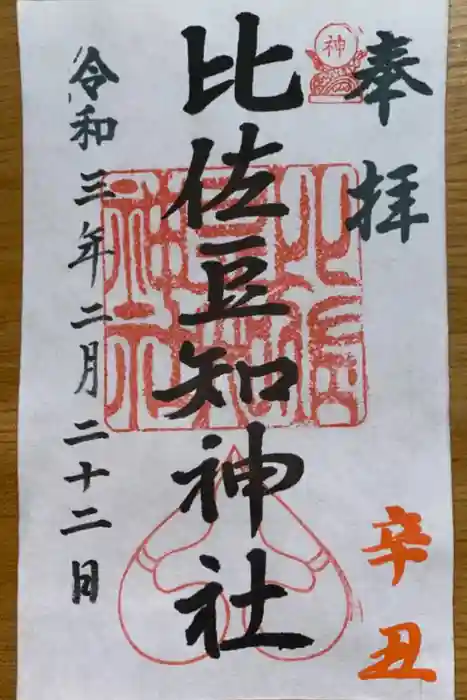 奉拝
辛丑
神
比佐豆知神社
令和三年二月二十二日